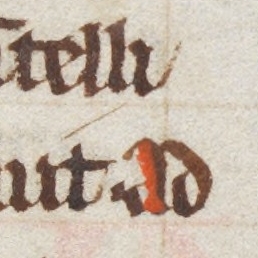 stelli
aut ad